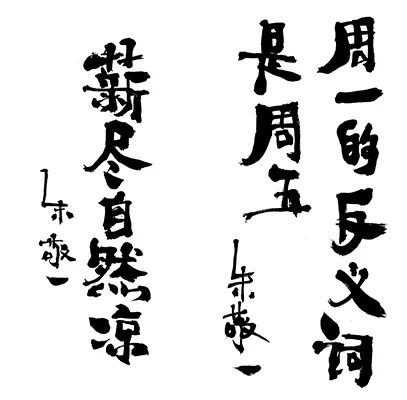 周一的反义词
是周五
朱敬一
薪尽自然凉
朱敬一